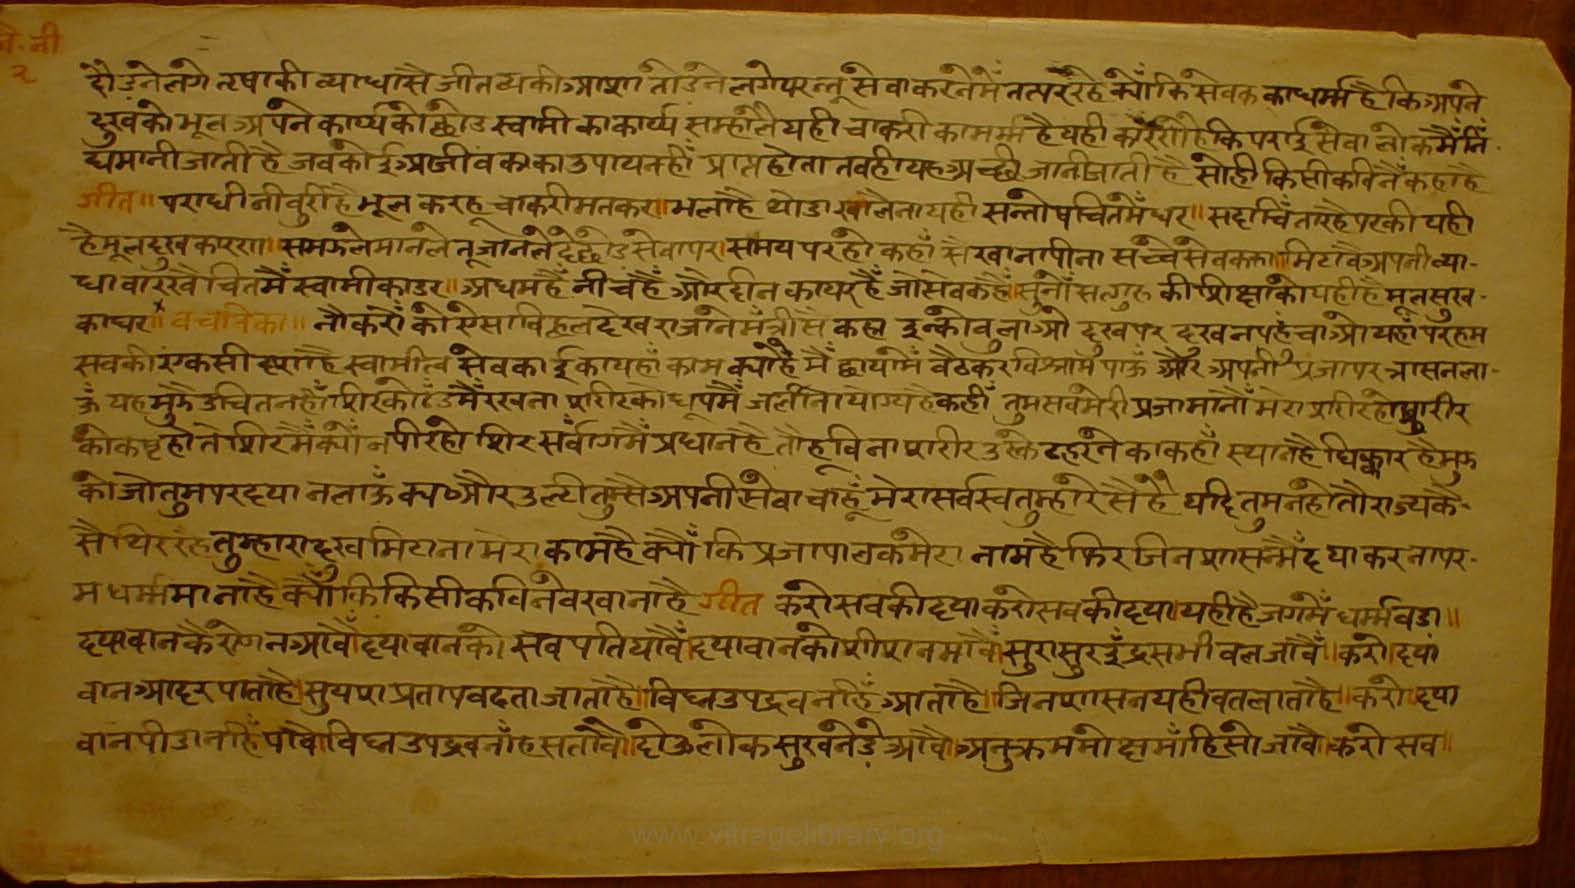 नै. नी
२
दौडने लगे तृषा की व्याधा सै जीतव्य की आशा तोडने लगे परन्तू सेवा करने में तत्पर रहे क्योंकि सेवक का धर्म्म है कि अपने
दुख को भूल अपने कार्य्य को छोड स्वामी का कार्य्य सम्हालै यही चाकरी का मर्म्म है यही कारण है कि पराई सेवा लोक मैं निं-
द्य मानी जाती है जव कोई आजीवका का उपाय नहीं प्राप्त होता तव ही यह अच्छी जानी जाती है सो ही किसी कवि नैं कहा है
गीत॥ पराधीनी वुरी है भूल कर हू चाकरी मत कर॥ भला है थोडा खा लैना यही सन्तोष चित में धर॥ सदा चिंता रहै पर की यही
है मूल दुख कारण॥ समझ ले मान ले तू जान ले दे छोड सेवा पर॥ समय पर हो कहाँ सै खाना पीना सच्चे सेवक का॥ मिटावै अपनी व्या-
धा वा रखै चित मैं स्वामी का डर॥ अधम हैं नीच हैं और दीन कायर हैं जो सेवक हैं॥ सुनों सत्गुरु की शिक्षा को यही है मूल सुख-
का घर॥ वचनिका॥ नौकरों को ऐसा विह्वल देख राजा ने मंत्री सै कहा इन्को वुलाओ दुख पर दुख न पहुंचाओ यहाँ पर हम
सव की एक सी दशा है स्वामीत्व सेवकाई का यहाँ काम क्या है मैं छाया में वैठकर विश्राम पाऊं और अपनी प्रजा पर त्रास न ला-
ऊं यह मुझै उचित नहीं शिर को ठंड मैं रखना शरीर को धूप मैं जलाना योग्य है कहीं तुम सव मेरी प्रजा मानों मेरा शरीर हो शरीर
को कष्ट हो तो शिर मैं क्यों न पीर हो शिर सर्वांग मैं प्रधान है तौ हू विना शरीर उस्के ठहरने का कहाँ स्थान है धिक्कार है मुझ
को जो तुम पर दया न लाऊँ क्या और उल्टी तुम्सै अपनी सेवा चाहूं मेरा सर्वस्व तुम्हारे सै है यदि तुम न हो तौ राज्य कै-
सै थिर रहै तुम्हारा दुख मिटाना मेरा काम है क्यों कि प्रजापालक मेरा नाम है फिर जिन शासन्मैं दया करना पर-
म धर्म्म माना है क्यों कि किसी कवि ने वखाना है गीत करो सव की दया करो सव की दया॥ यही है जग में धर्म्म वडा॥
दयावान कै रोग न आवैं॥ दयावान को सव पतियावैं॥ दयावान को शीश नमावैं॥ सुरासुर इंद्र सभी वल जावैं॥ करो॥ दया
वान आदर पाता है॥ सुयश प्रताप वढता जाता है॥ विघ्न उपद्रव नहिं आता है॥ जिन शासन यही वतलाता है॥ करो॥ दया
वान पीडा नहिं पावै॥ विघ्न उपद्रव नाँह सतावै॥ दोऊ लोक सुख नेडे आवै॥ अनुक्रम मोक्ष माँहि सो जावै॥ करो सव॥
www.vitragelibrary.org